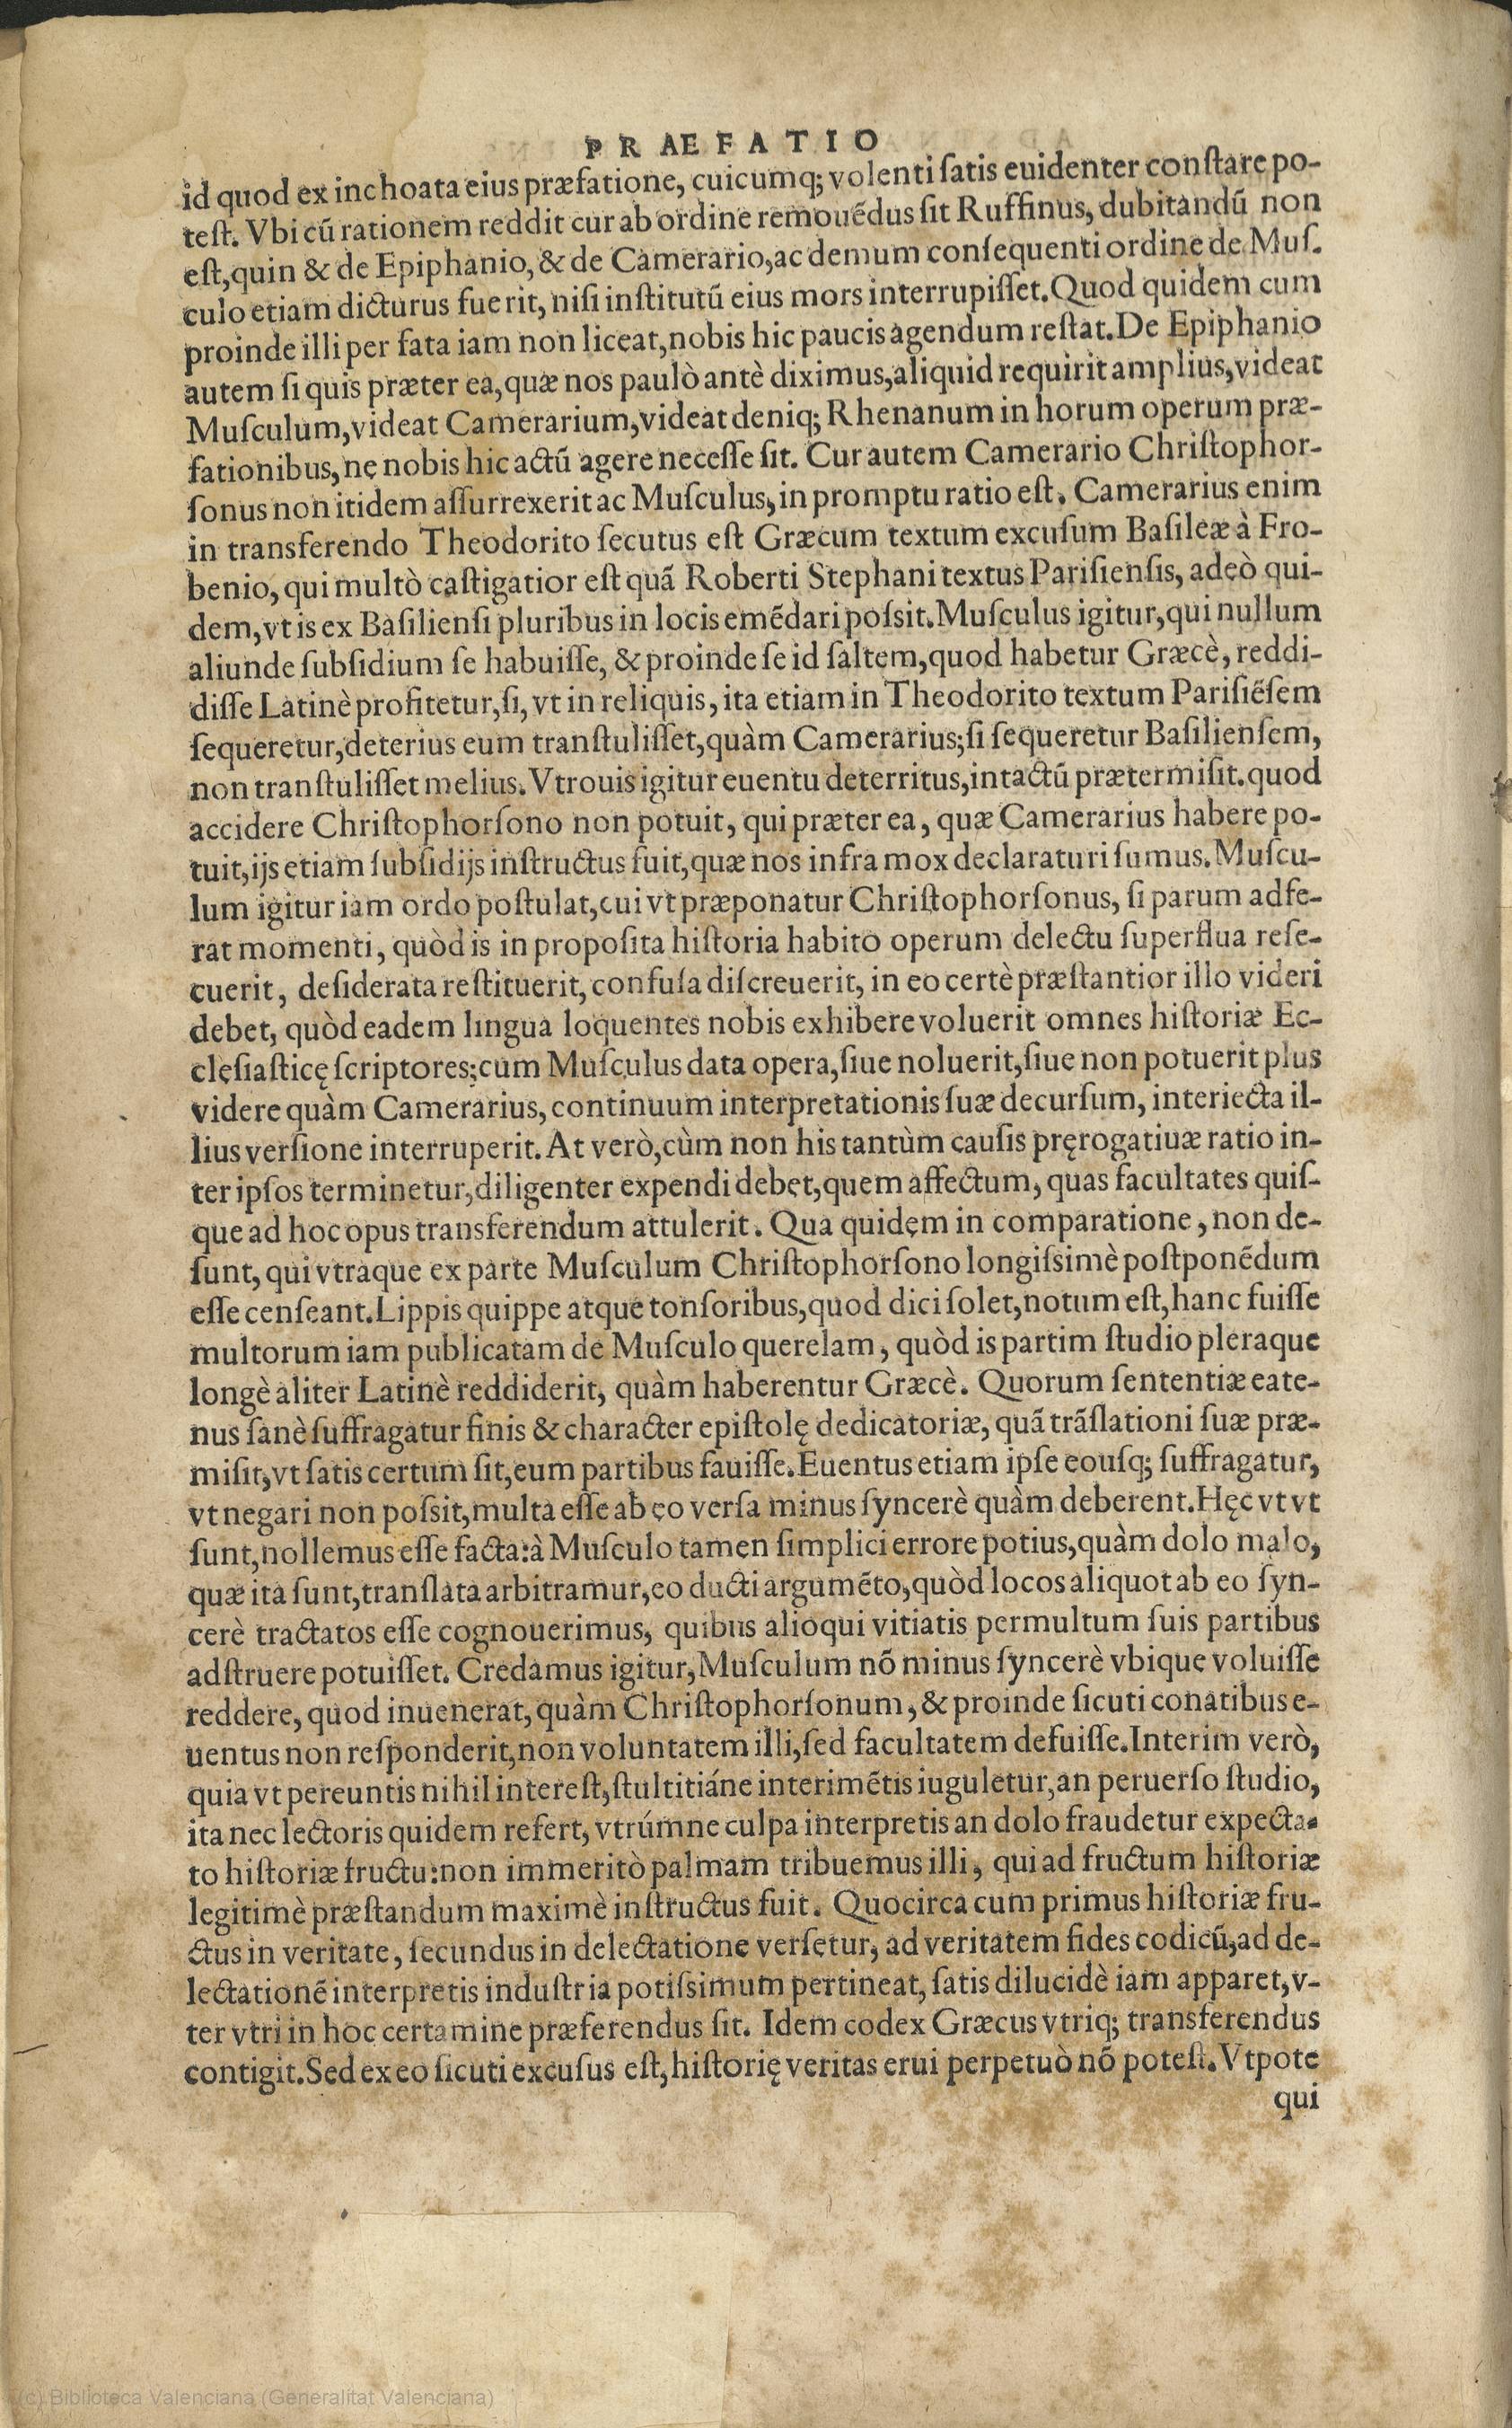 PRAEFATIO
id quod ex inchoata eius præfatione, cuicumq; volenti ſatis euidenter conſtare po-
teſt. Vbi cū rationem reddit cur ab ordine remouēdus ſit Ruffinus, dubitandū non
eſt, quin & de Epiphanio, & de Camerario, ac demum conſequenti ordine de Muſ.
culo etiam dicturus fuerit, niſi inſtitutū eius mors interrupiſſet. Quod quidem cum
proinde illi per fata iam non liceat, nobis hic paucis agendum reſtat. De Epiphanio
autem ſi quis præter ea, quæ nos paulò antè diximus, aliquid requirit amplius, videat
Muſculum, videat Camerarium, videat deniq; Rhenanum in horum operum præ-
fationibus, ne nobis hic actū agere neceſſe ſit. Cur autem Camerario Chriſtophor-
ſonus non itidem aſſurrexerit ac Muſculus, in promptu ratio eſt. Camerarius enim
in transferendo Theodorito ſecutus eſt Græcum textum excuſum Baſileæ à Fro-
benio, qui multò caſtigatior eſt quā Roberti Stephani textus Pariſienſis, adeò qui-
dem, vt is ex Baſilienſi pluribus in locis emēdari poſsit. Muſculus igitur, qui nullum
aliunde ſubſidium ſe habuiſſe, & proinde ſe id ſaltem, quod habetur Græcè, reddi-
diſſe Latinè profitetur, ſi, vt in reliquis, ita etiam in Theodorito textum Pariſiēſem
ſequeretur, deterius eum tranſtuliſſet, quàm Camerarius; ſi ſequeretur Baſilienſem,
non tranſtuliſſet melius. Vtrouis igitur euentu deterritus, intactū prætermiſit. quod
accidere Chriſtophorſono non potuit, qui præter ea, quæ Camerarius habere po-
tuit, ijs etiam ſubſidijs inſtructus fuit, quæ nos infra mox declaraturi ſumus. Muſcu-
lum igitur iam ordo poſtulat, cui vt præponatur Chriſtophorſonus, ſi parum adfe-
rat momenti, quòd is in propoſita hiſtoria habito operum delectu ſuperflua reſe-
cuerit, deſiderata reſtituerit, confuſa diſcreuerit, in eo certè præſtantior illo videri
debet, quòd eadem lingua loquentes nobis exhibere voluerit omnes hiſtoriæ Ec-
cleſiaſticę ſcriptores; cum Muſculus data opera, ſiue noluerit, ſiue non potuerit plus
videre quàm Camerarius, continuum interpretationis ſuæ decurſum, interiecta il-
lius verſione interruperit. At verò, cùm non his tantùm cauſis pręrogatiuæ ratio in-
ter ipſos terminetur, diligenter expendi debet, quem affectum, quas facultates quiſ-
que ad hoc opus transferendum attulerit. Qua quidem in comparatione, non de-
ſunt, qui vtraque ex parte Muſculum Chriſtophorſono longiſsimè poſtponēdum
eſſe cenſeant. Lippis quippe atque tonſoribus, quod dici ſolet, notum eſt, hanc fuiſſe
multorum iam publicatam de Muſculo querelam, quòd is partim ſtudio pleraque
longè aliter Latinè reddiderit, quàm haberentur Græcè. Quorum ſententiæ eate-
nus ſanè ſuffragatur finis & character epiſtolę dedicatoriæ, quā trāſlationi ſuæ præ-
miſit, vt ſatis certum ſit, eum partibus fauiſſe. Euentus etiam ipſe eouſq; ſuffragatur,
vt negari non poſsit, multa eſſe ab eo verſa minus ſyncerè quàm deberent. Hęc vt vt
ſunt, nollemus eſſe facta: à Muſculo tamen ſimplici errore potius, quàm dolo malo,
quæ ita ſunt, tranſlata arbitramur, eo ducti argumēto, quòd locos aliquot ab eo ſyn-
cerè tractatos eſſe cognouerimus, quibus alioqui vitiatis permultum ſuis partibus
adſtruere potuiſſet. Credamus igitur, Muſculum nō minus ſyncerè vbique voluiſſe
reddere, quod inuenerat, quàm Chriſtophorſonum, & proinde ſicuti conatibus e-
uentus non reſponderit, non voluntatem illi, ſed facultatem defuiſſe. Interim verò,
quia vt pereuntis nihil intereſt, ſtultitiáne interimētis iuguletur, an peruerſo ſtudio,
ita nec lectoris quidem refert, vtrúmne culpa interpretis an dolo fraudetur expecta-
to hiſtoriæ fructu: non immeritò palmam tribuemus illi, qui ad fructum hiſtoriæ
legitimè præſtandum maximè inſtructus fuit. Quocirca cum primus hiſtoriæ fru-
ctus in veritate, ſecundus in delectatione verſetur, ad veritatem fides codicū, ad de-
lectationē interpretis induſtria potiſsimum pertineat, ſatis dilucidè iam apparet, v-
ter vtri in hoc certamine præferendus ſit. Idem codex Græcus vtriq; transferendus
contigit. Sed ex eo ſicuti excuſus eſt, hiſtorię veritas erui perpetuò nō poteſt. Vtpote
qui
(c) Biblioteca Valenciana (Generalitat Valenciana)